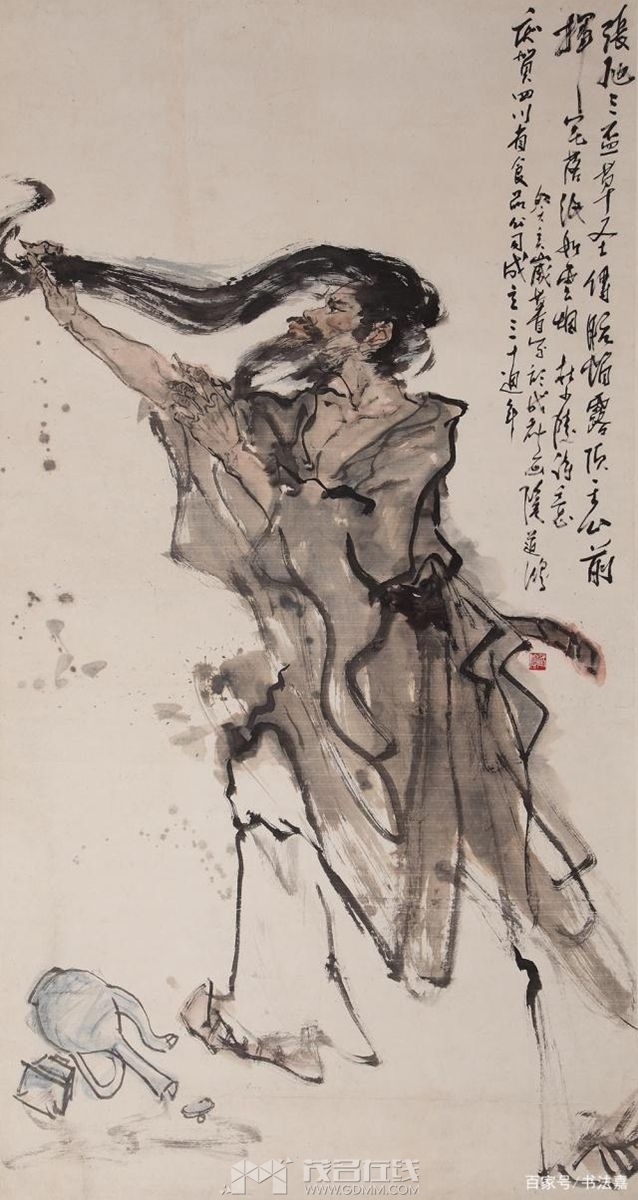 張旭三盃草圣傳脫帽露頂王公前
揮毫落紙如雲烟 杜少陵詩意
癸亥歲暮写於成都画院道
庆賀四川省食品公司成立三十週年
茂名在线
WWW.GDMM.COM
百家号/书法嘉